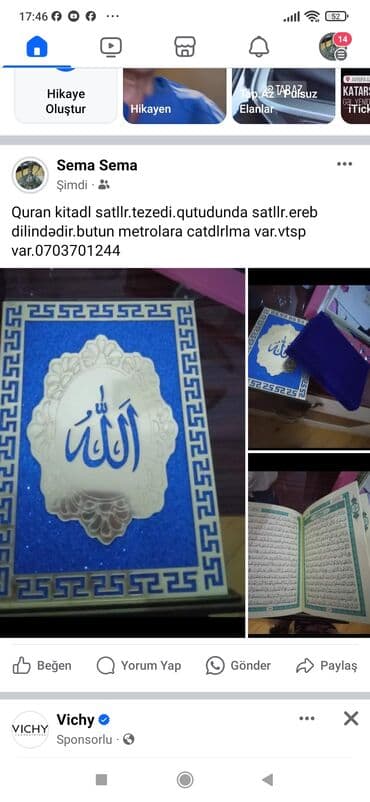 17:46
52
14
Hikaye
Oluştur
Hikayen
TABAZ
Elanlar
KATARS
iTick
Sema Sema
Şimdi ·
Quran kitadl satllr.tezedi.qutudunda satllr.ereb
dilindədir.butun metrolara catdlrlma var.vtsp
var.0703701244
الله
Beğen
Yorum Yap
Gönder
Paylaş
VICHY
Vichy
Sponsorlu ·